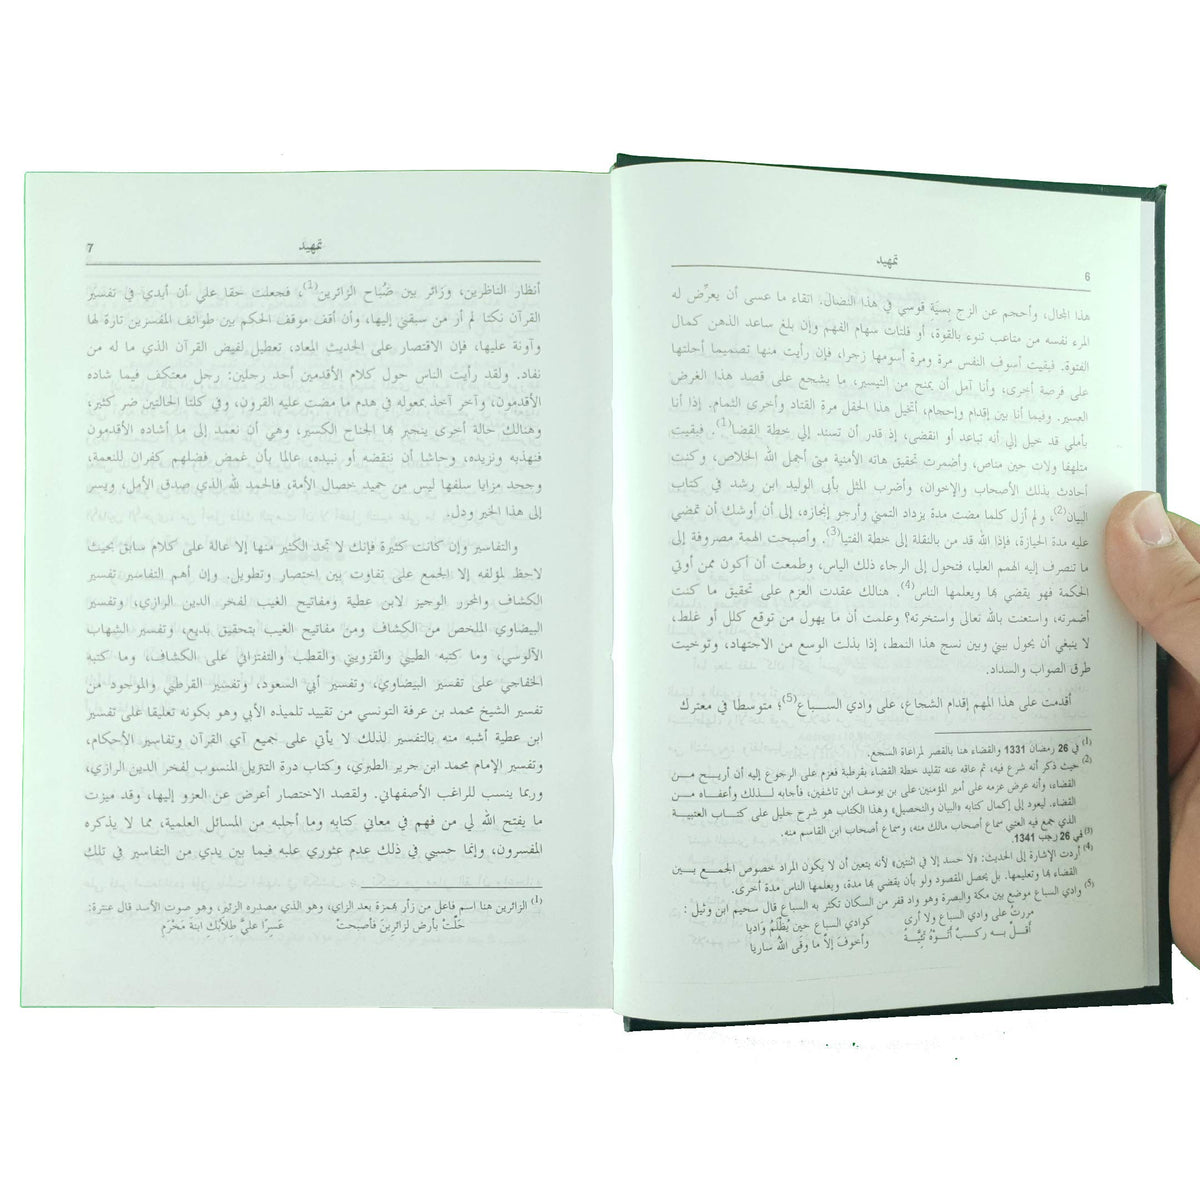 6
تمهيد
هذا المجال، وأحجم عن الزج بِسِيَة قوسي في هذا النضال. اتقاء ما عسى أن يعرِّض له
المرء نفسه من متاعب تنوء بالقوة، أو فلتات سهام الفهم وإن بلغ ساعد الذهن كمال
الفتوة. فبقيت أسوف النفس مرة ومرة أسومها زجرا، فإن رأيت منها تصميما أحلتها
على فرصة أخرى، وأنا آمل أن يمنح من التيسير، ما يشجع على قصد هذا الغرض
العسير. وفيما أنا بين إقدام وإحجام، أتخيل هذا الحقل مرة القتاد وأخرى الثمام. إذا أنا
بأملي قد خيل إلي أنه تباعد أو انقضى، إذ قدر أن تسند إلي خطة القضا(1). فبقيت
متلهفا ولات حين مناص، وأضمرت تحقيق هاته الأمنية متى أجمل الله الخلاص، وكنت
أحادث بذلك الأصحاب والإخوان، وأضرب المثل بأبي الوليد ابن رشد في كتاب
البيان(2)، ولم أزل كلما مضت مدة يزداد التمني وأرجو إنجازه، إلى أن أوشك أن تمضي
عليه مدة الحيازة، فإذا الله قد من بالنقلة إلى خطة الفتيا(3). وأصبحت الهمة مصروفة إلى
ما تنصرف إليه الهمم العليا، فتحول إلى الرجاء ذلك الياس، وطمعت أن أكون ممن أوتي
الحكمة فهو يقضي بها ويعلمها الناس(4). هنالك عقدت العزم على تحقيق ما كنت
أضمرته، واستعنت بالله تعالى واستخرته؟ وعلمت أن ما يهول من توقع كلل أو غلط،
لا ينبغي أن يحول بيني وبين نسج هذا النمط، إذا بذلت الوسع من الاجتهاد، وتوخيت
طرق الصواب والسداد.
أقدمت على هذا المهم إقدام الشجاع، على وادي الســباع(5)؛ متوسطا في معترك
(1) في 26 رمضان 1331 والقضاء هنا بالقصر لمراعاة السجع.
(2) حيث ذكر أنه شرع فيه، ثم عاقه عنه تقليد خطة القضاء بقرطبة فعزم على الرجوع إليه أن أريـــح مـــن
القضاء، وأنه عرض عزمه على أمير المؤمنين على بن يوسف ابن تاشفين، فأجابه لـــذلك وأعفـــاه مـــن
القضاء. ليعود إلى إكمال كتابه «البيان والتحصيل» وهذا الكتاب هو شرح جليل على كتـــاب العتبيـــة
الذي جمع فيه العتبي سماع أصحاب مالك منه، وسماع أصحاب ابن القاسم منه.
(3) في 26 رجب 1341.
(4) أردت الإشارة إلى الحديث: «لا حسد إلا في اثنتين» لأنه يتعين أن لا يكون المراد خصوص الجمـــع بـــين
القضاء بها وتعليمها. بل يحصل المقصود ولو بأن يقضي بها مدة، ويعلمها الناس مدة أخرى.
(5) وادي السباع موضع بين مكة والبصرة وهو واد قفر من السكان تكثر به السباع قال سحيم ابن وثيل :
مررتُ على وادي السباع ولا أرى كوادي السباع حين يُظْلِمُ وَاديا
أقلَّ بــه ركــبٌ أتَوْهُ تَئِيَّةً وأخوفَ إلاَّ ما وقَى اللهُ ساريا
تمهيد
7
أنظار الناظرين، وزائر بين ضُبَاح الزائرين(1)، فجعلت حقا علي أن أبدي في تفسير
القرآن نكتا لم أر من سبقني إليها، وأن أقف موقف الحكم بين طوائف المفسرين تارة لها
وآونة عليها، فإن الاقتصار على الحديث المعاد، تعطيل لفيض القرآن الذي ما له من
نفاد. ولقد رأيت الناس حول كلام الأقدمين أحد رجلين: رجل معتكف فيما شاده
الأقدمون، وآخر آخذ بمعوله في هدم ما مضت عليه القرون، وفي كلتا الحالتين ضر كثير،
وهنالك حالة أخرى ينجبر بها الجناح الكسير، وهي أن نعمد إلى ما أشاده الأقدمون
فنهذبه ونزيده، وحاشا أن ننقضه أو نبيده، عالما بأن غمض فضلهم كفران للنعمة،
وجحد مزايا سلفها ليس من حميد خصال الأمة، فالحمد لله الذي صدق الأمل، ويسر
إلى هذا الخير ودل.
والتفاسير وإن كانت كثيرة فإنك لا تجد الكثير منها إلا عالة على كلام سابق بحيث
لاحظ لمؤلفه إلا الجمع على تفاوت بين اختصار وتطويل. وإن أهم التفاسير تفسير
الكشاف والمحرر الوجيز لابن عطية ومفاتيح الغيب لفخر الدين الرازي، وتفسير
البيضاوي الملخص من الكشاف ومن مفاتيح الغيب بتحقيق بديع، وتفسير الشهاب
الآلوسي، وما كتبه الطيبي والقزويني والقطب والتفتزاني على الكشاف، وما كتبه
الخفاجي على تفسير البيضاوي، وتفسير أبي السعود، وتفسير القرطبي والموجود من
تفسير الشيخ محمد بن عرفة التونسي من تقييد تلميذه الأبي وهو بكونه تعليقا على تفسير
ابن عطية أشبه منه بالتفسير لذلك لا يأتي على جميع آي القرآن وتفاسير الأحكام،
وتفسير الإمام محمد ابن جرير الطبري، وكتاب درة التنزيل المنسوب لفخر الدين الرازي،
وربما ينسب للراغب الأصفهاني. ولقصد الاختصار أعرض عن العزو إليها، وقد ميزت
ما يفتح الله لي من فهم في معاني كتابه وما أجلبه من المسائل العلمية، مما لا يذكره
المفسرون، وإنما حسبي في ذلك عدم عثوري عليه فيما بين يدي من التفاسير في تلك
(1) الزائرين هنا اسم فاعل من زأر بهمزة بعد الزاي، وهو الذي مصدره الزئير، وهو صوت الأسد قال عنترة:
حَلَّتْ بأرض لزائرِينَ فأصبحتْ عَسِرًا عليَّ طِلاَبُك ابنةَ مَخْرَمِ